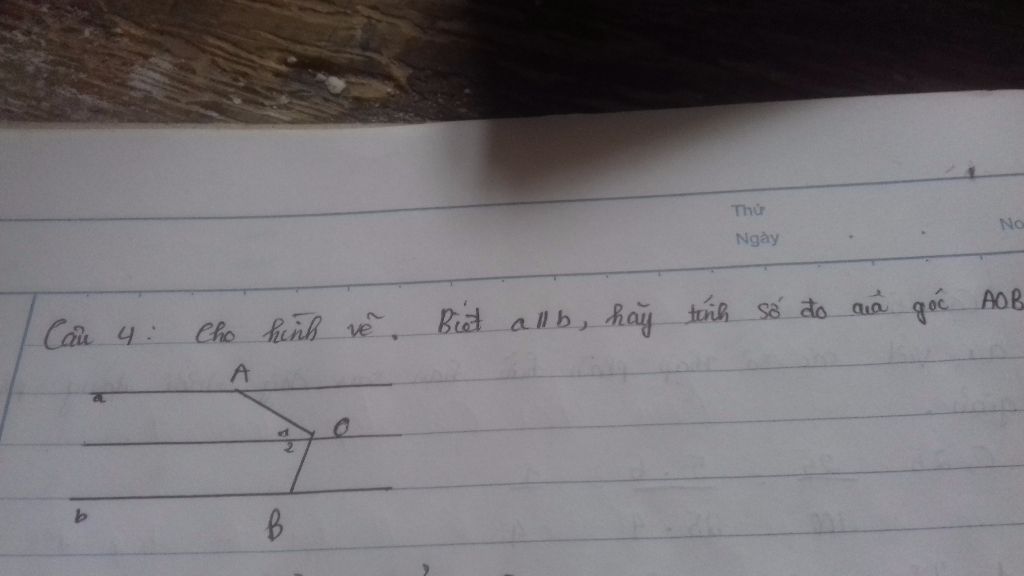 Thứ
Ngày
No
Câu 4: Cho hình vẽ. Biết a//b, hãy tính số đo của góc AOB
A
a
1
2
O
b
B